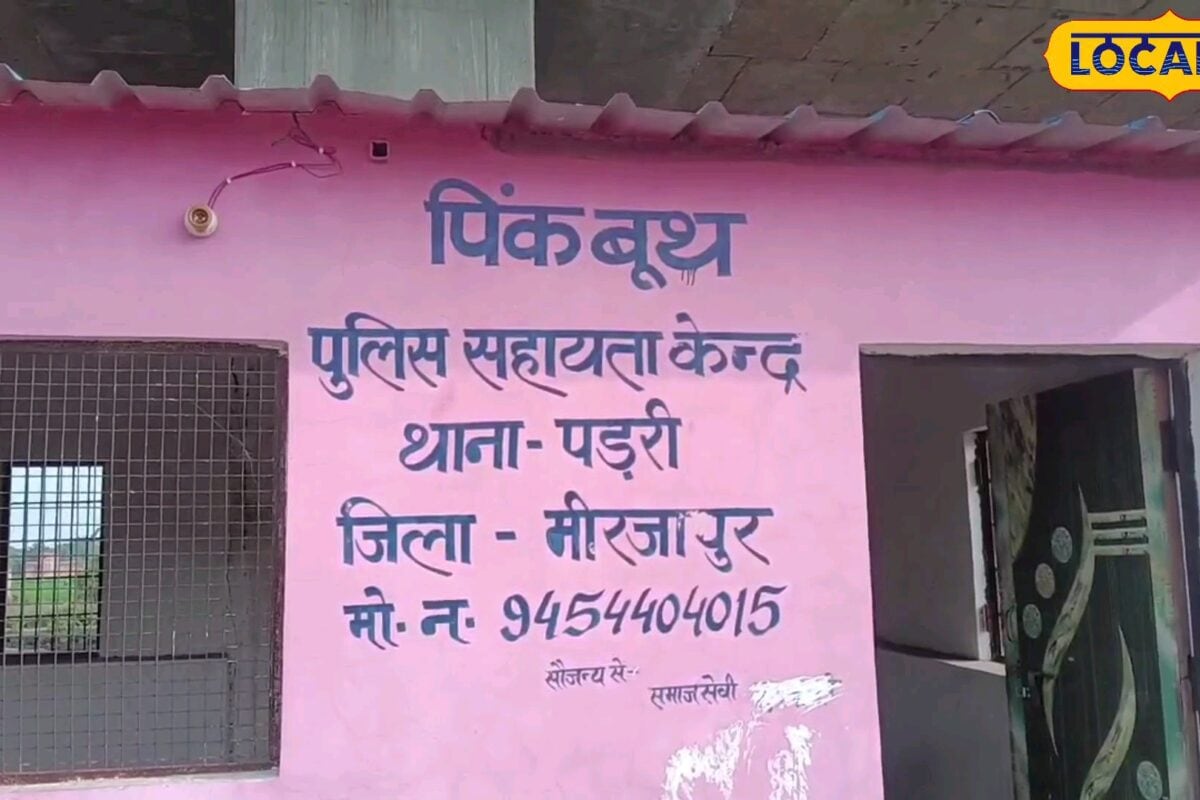 LOCAL
पिंक बूथ
पुलिस सहायता केन्द्र
थाना - पड़री
जिला - मीरजापुर
मो. न. 9454404015
सौजन्य से--
समाज सेवी